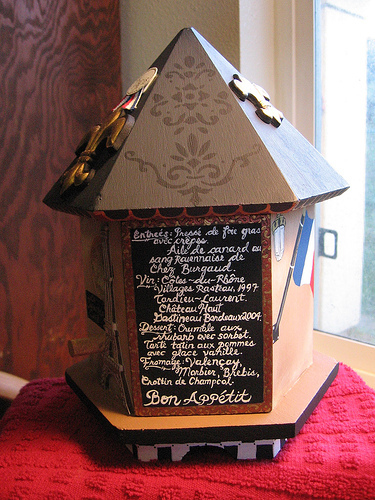 Entrées: Pressé de foie gras
avec crêpes.
Aile de canard au
sang Ravennaise de
Chez Burgaud.
Vin: Côtes-du-Rhône
Villages Rasteau, 1997
Tardieu-Laurent.
Château Haut
Bastineau Bordeaux 2004.
Dessert: Crumble aux
rhubarb avec sorbet.
Tarte tatin aux pommes
avec glace vanille.
Fromage: Valençay,
Morbier, Brebis,
Crottin de Champcol.
Bon Appétit